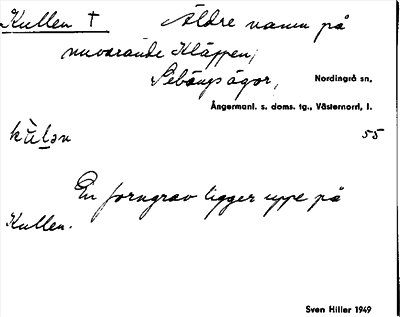 Kullen † Äldre namn på
nuvarande Kläppen,
Sebångs ägor, Nordingrå sn,
Ångermanl. s. doms. tg., Västernorrl. l.
kùlən 55
En forngrav ligger uppe på
Kullen.
Sven Hiller 1949